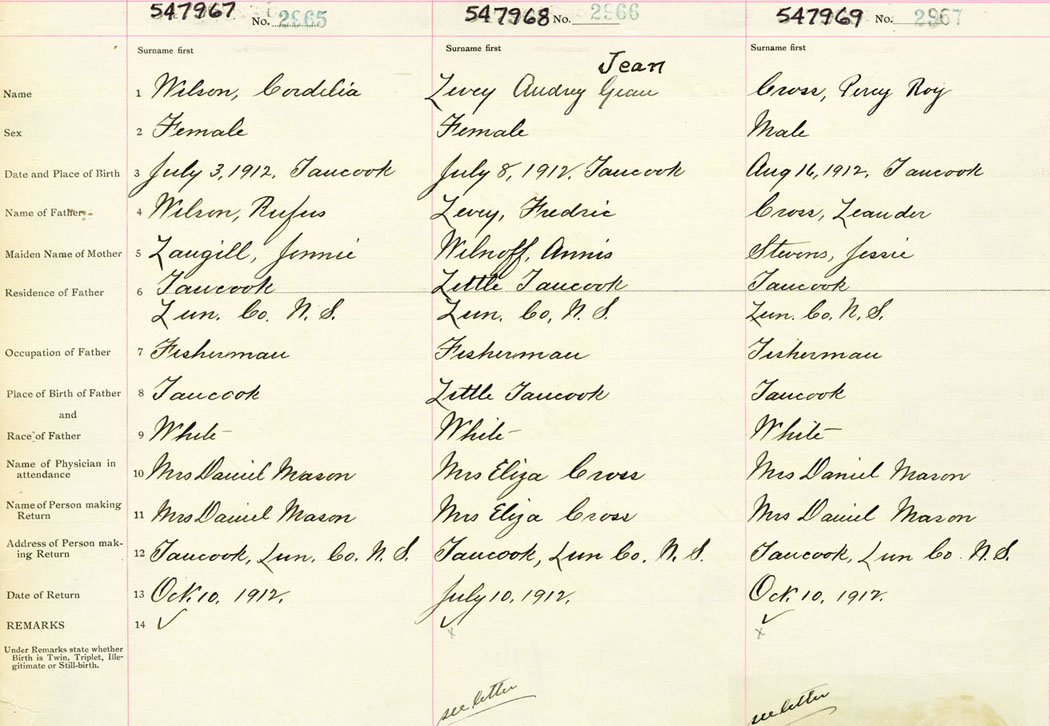 547967 No. 2965 547968 No. 2966 547969 No. 2967
Surname first Surname first Surname first
Jean
Name 1 Wilson, Cordelia Levey Audrey Geau Cross, Percy Roy
Sex 2 Female Female Male
Date and Place of Birth 3 July 3, 1912, Tancook July 8, 1912, Tancook Aug 16, 1912, Tancook
Name of Father 4 Wilson, Rufus Levey, Fredric Cross, Leander
Maiden Name of Mother 5 Langill, Jennie Wilnoff, Annis Stevens, Jessie
Residence of Father 6 Tancook Little Tancook Tancook
Lun. Co. N. S. Lun. Co, N. S. Lun. Co. N. S.
Occupation of Father 7 Fisherman Fisherman Fisherman
Place of Birth of Father 8 Tancook Little Tancook Tancook
and
Race of Father 9 White White White
Name of Physician in
attendance 10 Mrs Daniel Mason Mrs Eliza Cross Mrs Daniel Mason
Name of Person making
Return 11 Mrs Daniel Mason Mrs Eliza Cross Mrs Daniel Mason
Address of Person mak-
ing Return 12 Tancook, Lun. Co. N. S. Tancook, Lun Co. N. S. Tancook, Lun Co. N. S.
Date of Return 13 Oct. 10, 1912. July 10, 1912, Oct. 10, 1912.
REMARKS 14 ✓ ✓ ✓
x x
Under Remarks state whether
Birth is Twin, Triplet, Ille-
gitimate or Still-birth.
see letter see letter